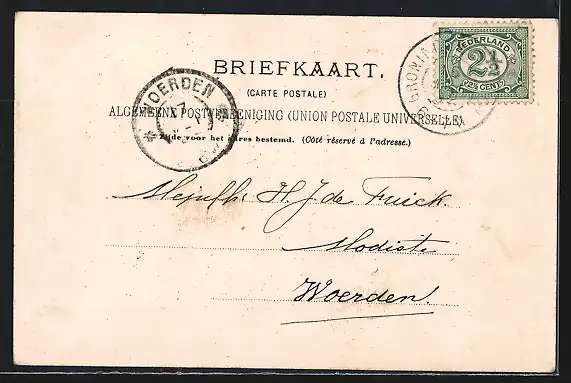 BRIEFKAART.
(CARTE POSTALE)
ALGEMEENE POSTVEREENIGING (UNION POSTALE UNIVERSELLE)
Zijde voor het adres bestemd. (Côté réservé à l'adresse.)
NEDERLAND
2½
(2½ CENT)
WOERDEN
Mejufhr. H. J. de Frick
Modiste
Woerden.